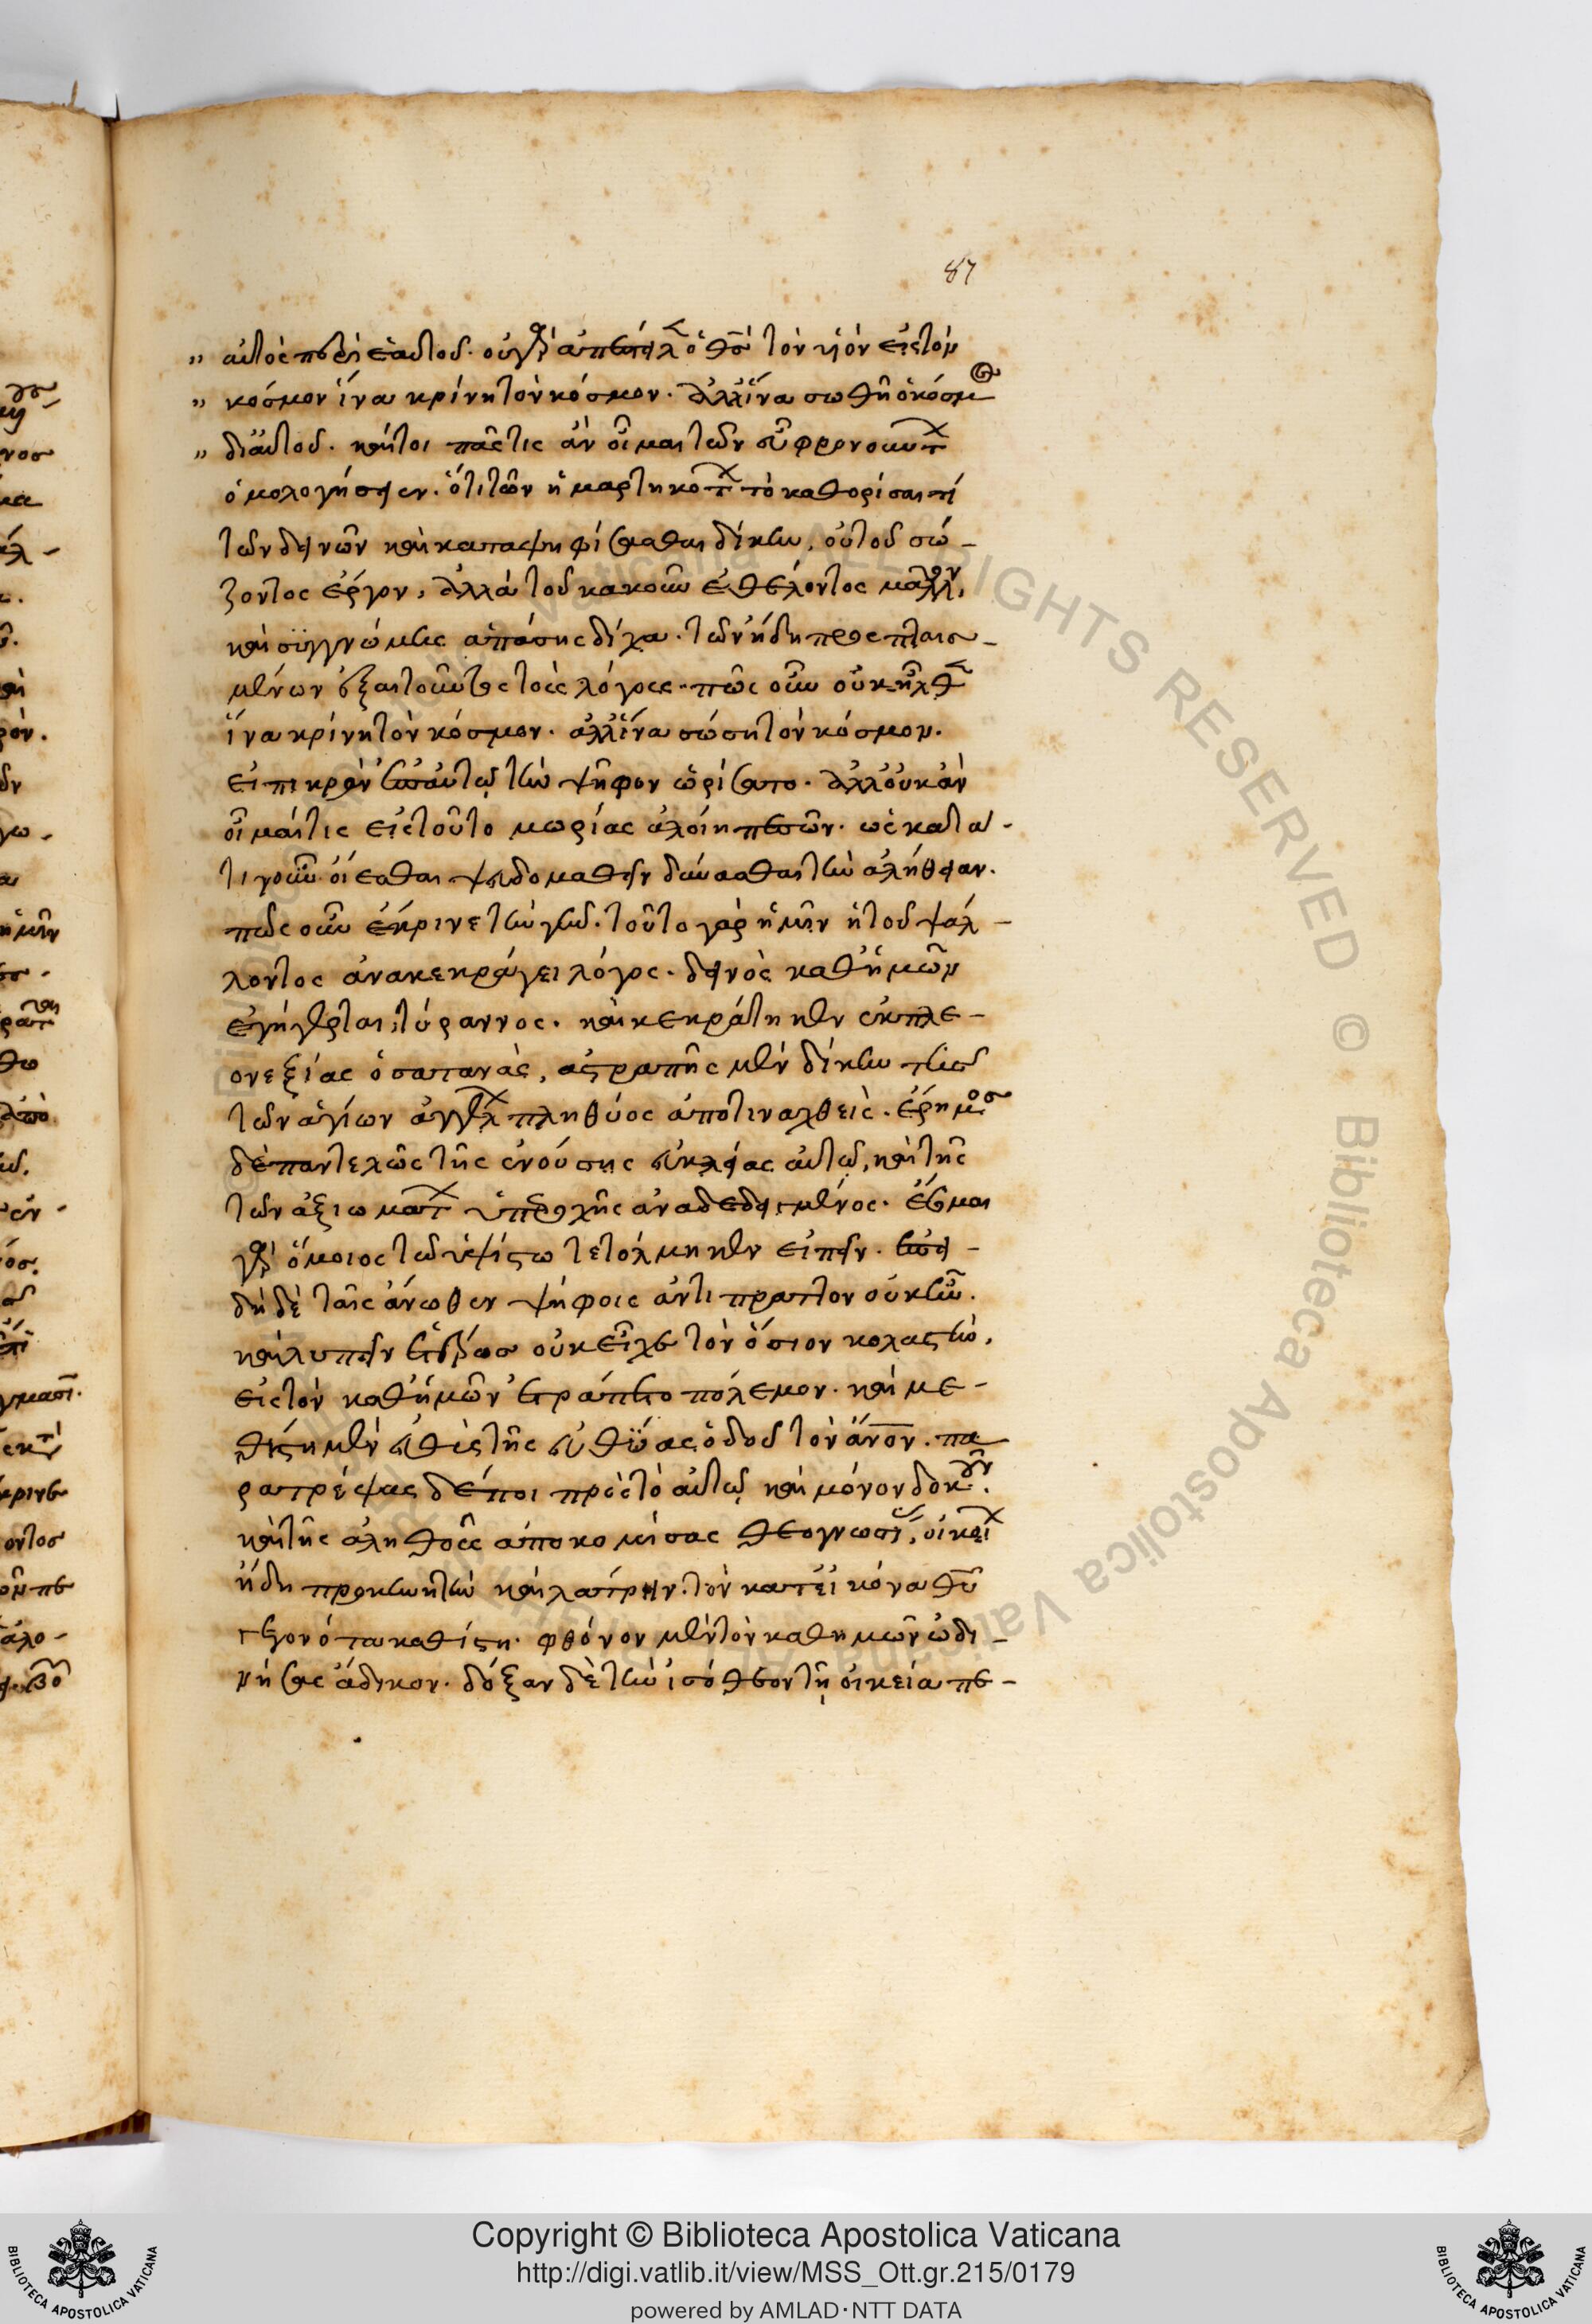 87
„ αὐτὸς περὶ ἑαυτοῦ. οὐ γὰρ ἀπέστειλεν ὁ θσ τὸν υἱὸν εἰς τὸν
„ κόσμον ἵνα κρίνη τὸν κόσμον. ἀλλ' ἵνα σωθῆ ὁ κόσμος
„ δι' αὐτοῦ. καίτοι πᾶς τις ἂν οἶμαι τῶν εὖ φρονούντων
ὁμολογήσειεν. ὅτι τῶν ἡμαρτηκότων τὸ καθορίσαι τι
τῶν δεινῶν καὶ καταψηφίσασθαι δίκην, οὐ τοῦ σώ-
ζοντος ἔργον, ἀλλὰ τοῦ κακοῦν ἐθέλοντος μᾶλλον,
καὶ συγγνώμης ἁπάσης δίχα. τῶν ἤδη προεπταισ-
μένων ἐξαιτοῦντος τοὺς λόγους. πῶς οὖν οὐκ ἦλθεν
ἵνα κρίνη τὸν κόσμον. ἀλλ' ἵνα σώση τὸν κόσμον.
εἰ πικρὰν ἐπ' αὐτῷ τὴν ψῆφον ὡρίσατο. ἀλλ' οὐκ ἂν
οἶμαί τις εἰς τοῦτο μωρίας ἁλοίη πεσὼν. ὡς κατα-
τιγοῦν οἴεσθαι ψευδομαθεῖν δύνασθαι τὴν ἀλήθειαν.
πῶς οὖν ἔκρινε τὴν γῆν. τοῦτο γὰρ ἡμῖν ἡ τοῦ ψάλ-
λοντος ἀνακεκράγει λόγος. δεινὸς καθ' ἡμῶν
ἐγήγερται τύραννος. καὶ κεκράτηκεν ἐκ πλε-
ονεξίας ὁ σατανὰς, ἀστραπῆς μὲν δίκην τῆς
τῶν ἁγίων ἀγγέλων πληθύος ἀποτιναχθεὶς. ἔρημος
δὲ παντελῶς τῆς ἐνούσης εὐκλείας αὐτῷ, καὶ τῆς
τῶν ἀξιωμάτων ὑπεροχῆς ἀναδεδειγμένος. ἔσομαι
γὰρ ὅμοιος τῷ ὑψίστω τετόλμηκεν εἰπεῖν. ἐπει-
δὴ δὲ ταῖς ἄνωθεν ψήφοις ἀντιπράττον οὐκ ἦν.
καὶ λυπεῖν ἑτέρως οὐκ εἶχε τὸν ὅσιον κολαστὴν.
εἰς τὸν καθ' ἡμῶν ἐτράπετο πόλεμον. καὶ με-
θίστη μὲν εὐθὺς τῆς εὐθείας ὁδοῦ τὸν ἄνον. πα
ρατρέψας δέ ποι πρὸς τὸ αὐτῷ καὶ μόνον δοκοῦν.
καὶ τῆς ἀληθοῦς ἀποκομίσας θεογνωσίας, οἰκείων
ἤδη προσκυνητὴν καὶ λάτριν. τὸν κατ' εἰκόνα θυ
γεγονότα καθίστη. φθόνον μὲν τὸν καθ' ἡμῶν ὠδι-
νήσας ἄδικον. δόξαν δὲ τὴν ἰσόθεον τῇ οἰκεία πε-
Copyright © Biblioteca Apostolica Vaticana
http://digi.vatlib.it/view/MSS_Ott.gr.215/0179
powered by AMLAD·NTT DATA
BIBLIOTECA APOSTOLICA VATICANA
BIBLIOTECA APOSTOLICA VATICANA